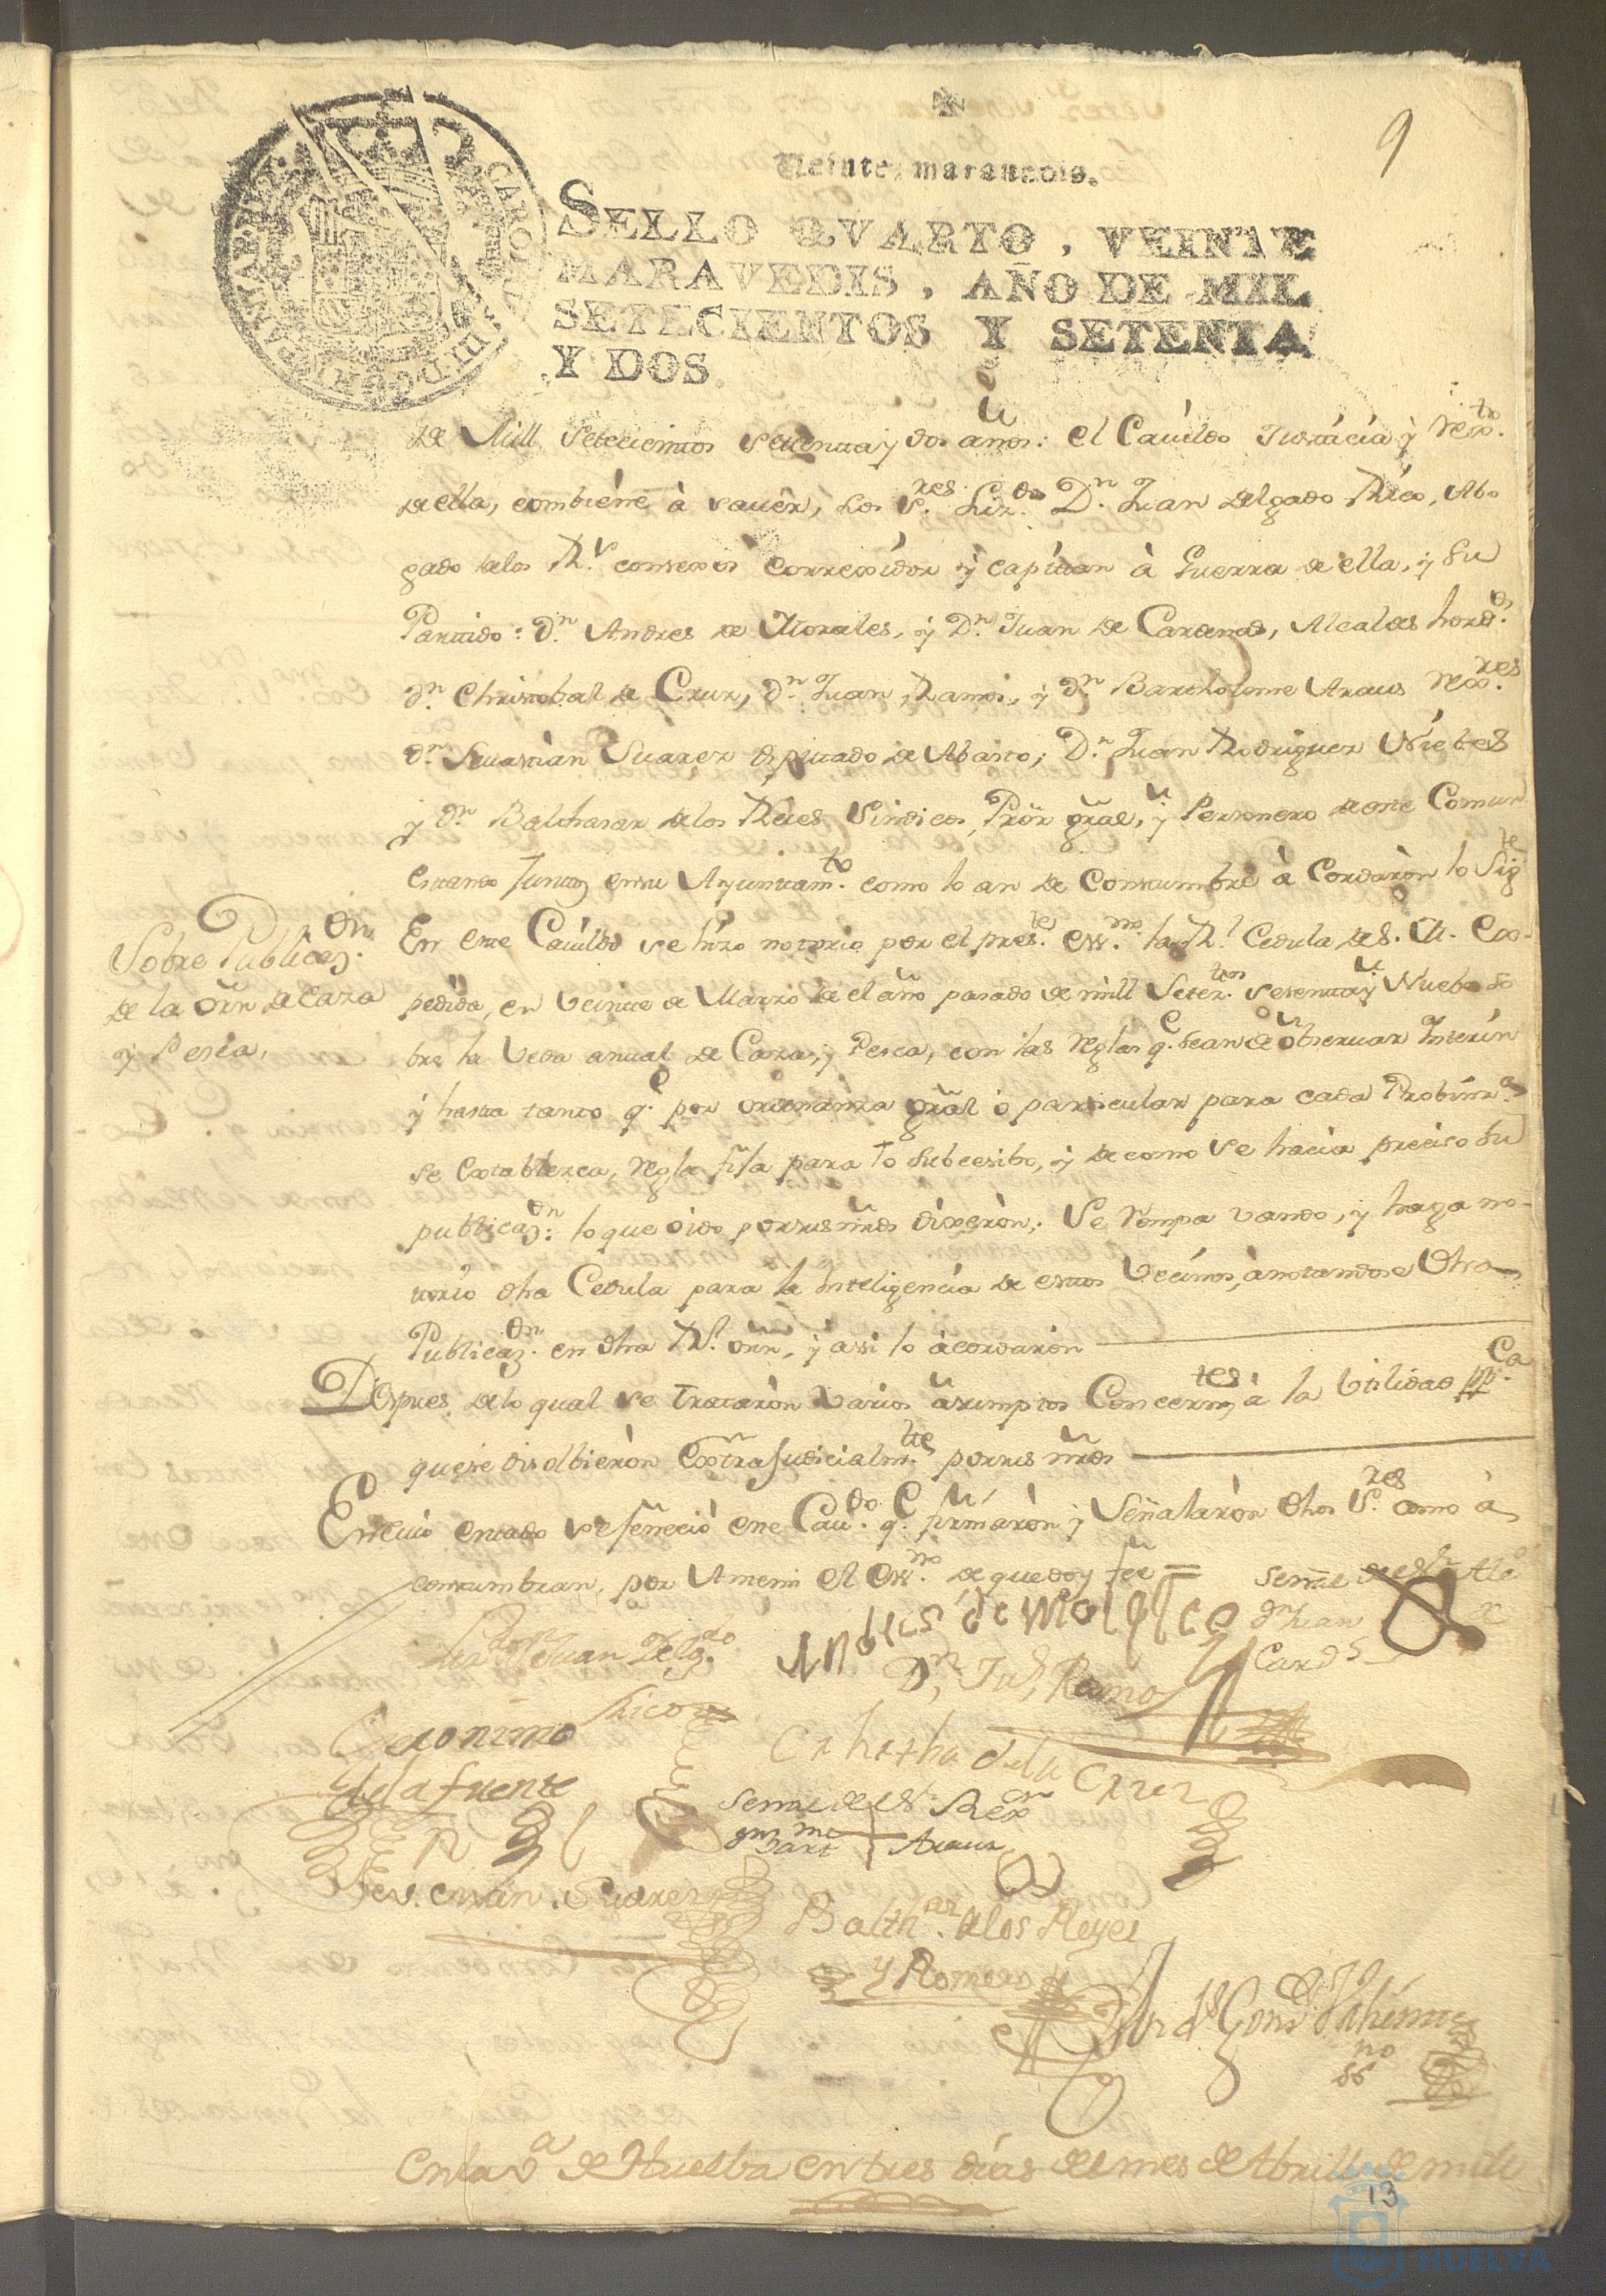 9
Veinte maravedis.
SELLO QVARTO, VEINTE
MARAVEDIS, AÑO DE MIL
SETECIENTOS Y SETENTA
Y DOS.
CAROLVS III D G HISPANIAR REX
de Mill Setecientos setenta y dos años: el Cavildo Justicia y Rexto.
de ella, combiene à saver, Los Sres. Lizdo. Dn. Juan Delgado Rico, Abo
gado delos Rs. consexos Correxidor y capitan à Guerra de ella, y su
Partido: Dn. Andres de Morales, y Dn. Juan de Cardenas, Alcaldes hords.
Dn. Christobal de Cruz, Dn. Juan Ramos, y Dn. Bartholome Araus Rexres.
Dn. Sevastian Suarez Diputado de Abasto; Dn. Juan Rodriguez Niebes
y Dn. Balthasar delos Reies Sindicos, Pror. gral, y Personero de este Comun
estando Juntos en su Ayuntamto. como lo an de Constumbre à Cordaron lo Sigte
Sobre Publicazon.
de la Orn de Caza
y Pesca,
En este Cavildo se hizo notorio por el preste. essno. la Rl. Cedula de S. M. Ex-
pedida, en Veinte de Marzo de el año pasado de mill Setezttos. setenta y Nuebe so
bre la Veda anual de Caza, y Pesca, con las reglas qe. sean de obseruar Interin
y hasta tanto qe. por ordenanza gral ò particular para cada Probinza
se Extablezca, regla fixa para lo subcesibo, y de como se hacia preciso su
publicazon: lo que oido por sus mrds dixeron: Se rompa vando, y haga no-
torio dha Cedula para la Inteligencia de estos Vecinos, anotandose dha
Publicazon. en dha Rl. orn, y assi lo àcordaron
Despues de lo qual se trataron varios asumptos Concerntes à la Utilidad ppca.
que se disolbieron Extrajudicialmte. por sus mrds
En cuio estado se feneciò este Cavdo. qe. firmaron y Señalaron dhos Sres. como à
constumbran, por Antemi el Essno. de que doy fee =
Lizdo Dn Juan Delgdo.
Rico
Andres de Morales
Señal de el Sr. Alc
Dn Juan de
Cards
Dn. Jun. Ramos
Geronimo
de la fuente
Christhl de la Cruz
Señal de el Sr. Rexor
Dn Barme Araus
Sevastian Suarez
Balthar. de los Reyes
y Romero
no
ss
En la Va de Huelba en tres dias del mes de Abril de mill
13
Ayuntamiento de
HUELVA